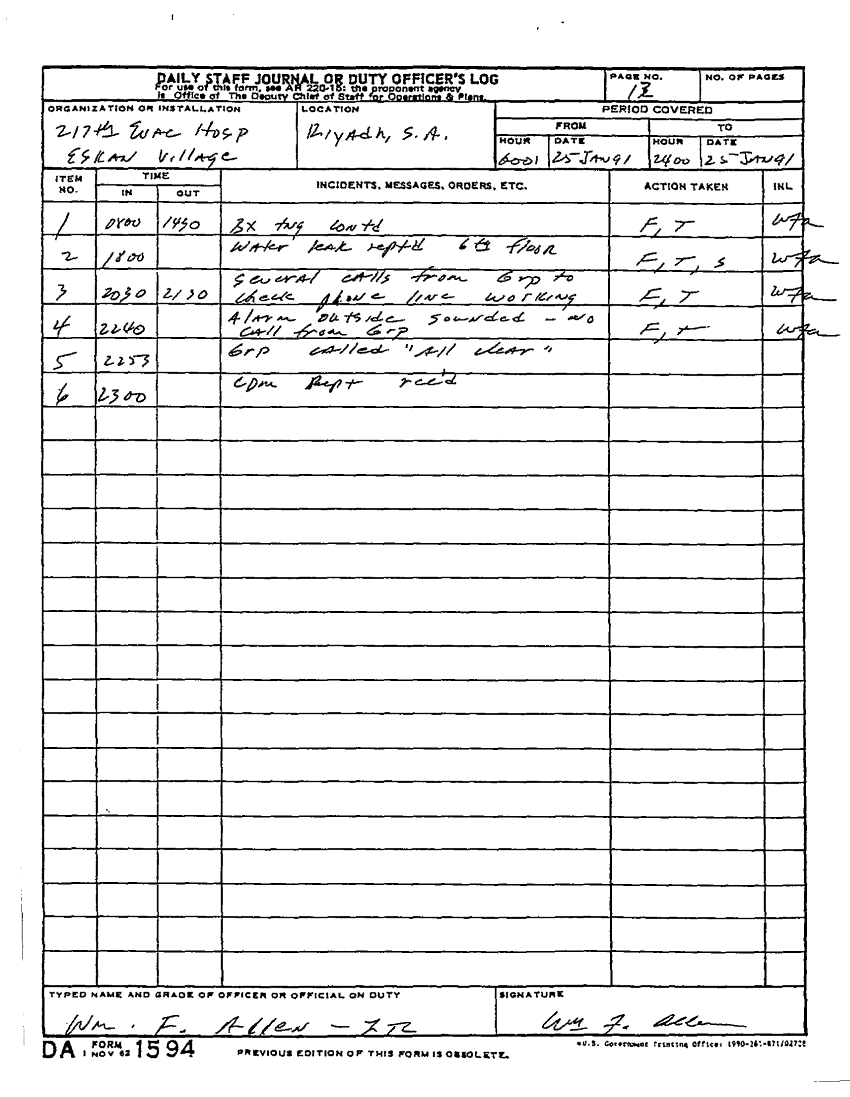 DAILY STAFF JOURNAL OR DUTY OFFICER'S LOG
For use of this form, see AR 220-15; the proponent agency
is Office of The Deputy Chief of Staff for Operations & Plans.
PAGE NO.
NO. OF PAGES
ORGANIZATION OR INSTALLATION
217th Evac Hosp
ESKAN Village
LOCATION
Riyadh, S.A.
PERIOD COVERED
FROM
TO
HOUR DATE HOUR DATE
0001 25 JAN 91 2400 25 JAN 91
ITEM NO. TIME INCIDENTS, MESSAGES, ORDERS, ETC. ACTION TAKEN INL
IN OUT
1 0800 1450 tng cont'd F, T wfa
2 1800 Water leak rept'd 6th floor F, T, S wfa
3 2030 2130 Several calls from Grp to
check phone line working F, T wfa
4 2240 Alarm outside sounded - no
call from Grp F, T wfa
5 2253 Grp called "All clear"
6 2300 Rept rec'd
TYPED NAME AND GRADE OF OFFICER OR OFFICIAL ON DUTY
Wm. F. Allen
SIGNATURE
Wm F. Allen
DA FORM 1 NOV 62 1594
PREVIOUS EDITION OF THIS FORM IS OBSOLETE.
U.S. Government Printing Office: